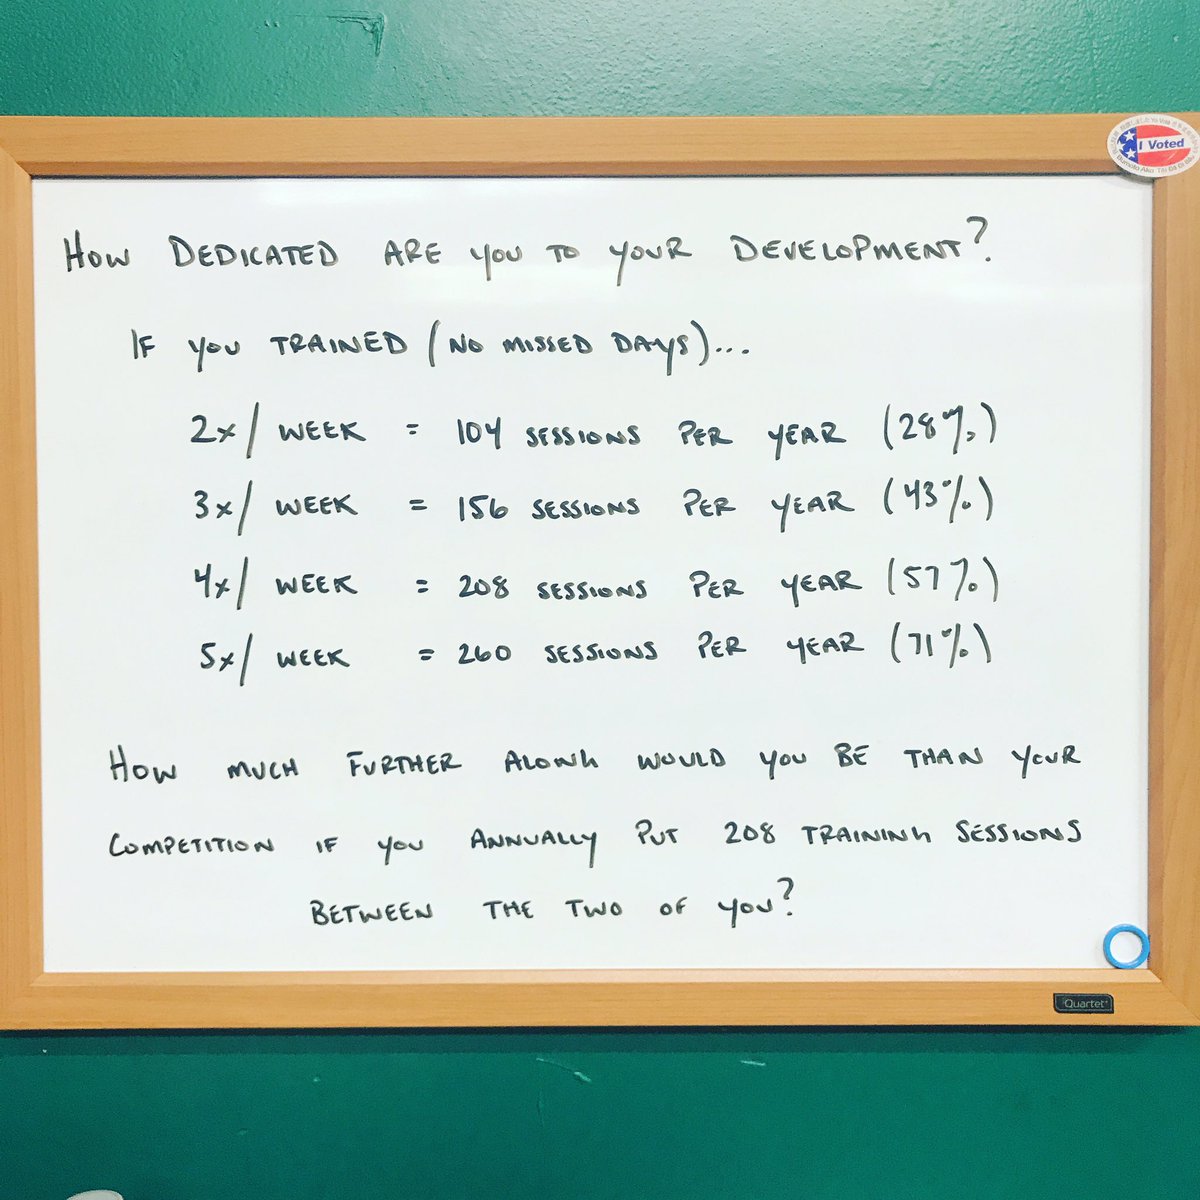 I Voted
HOW DEDICATED ARE YOU TO YOUR DEVELOPMENT?
IF YOU TRAINED (NO MISSED DAYS)...
2x/ WEEK = 104 SESSIONS PER YEAR (28%)
3x/ WEEK = 156 SESSIONS PER YEAR (43%)
4x/ WEEK = 208 SESSIONS PER YEAR (57%)
5x/ WEEK = 260 SESSIONS PER YEAR (71%)
HOW MUCH FURTHER ALONG WOULD YOU BE THAN YOUR
COMPETITION IF YOU ANNUALLY PUT 208 TRAINING SESSIONS
BETWEEN THE TWO OF YOU?
Quartet